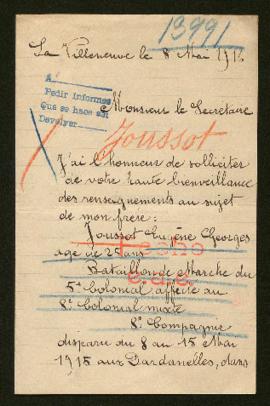 13991
La Villeneuve le 8 Mai 1916
A
Pedir informes
Que se hace así
Devolver
Monsieur le Secretaire
Joussot
J'ai l'honneur de solliciter
de votre haute bienveillance
des renseignements au sujet
de mon frère :
Joussot Eugène Georges
age de 25 ans
Bataillon de Marche du
5e Colonial affecté au
8e Colonial mixte
8e Compagnie
disparu du 8 au 15 Mai
1915 aux Dardanelles, dans